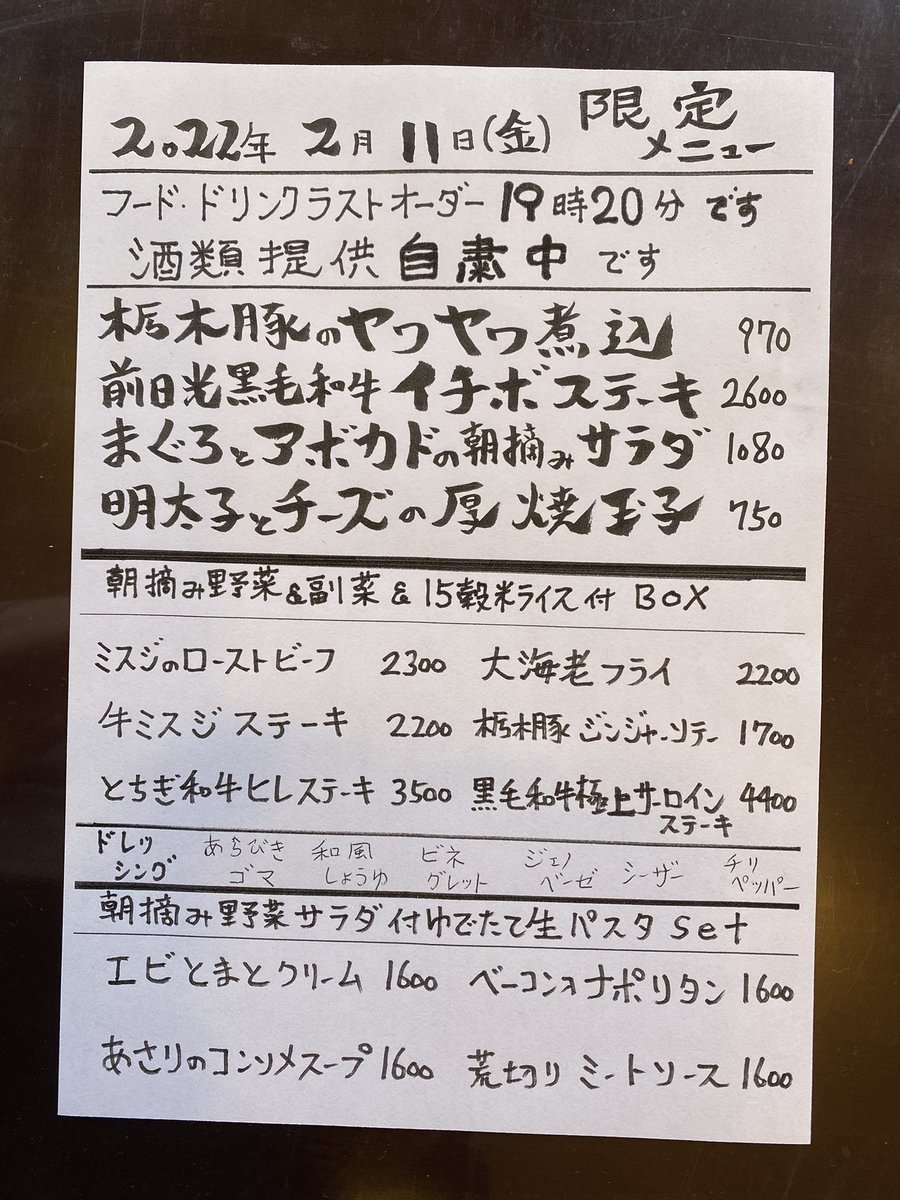 2022年 2月 11日(金) 限定メニュー
フード・ドリンクラストオーダー 19時20分 です
酒類提供 自粛中 です
栃木豚のヤワヤワ煮込 970
前日光黒毛和牛イチボステーキ 2600
まぐろとアボカドの朝摘みサラダ 1080
明太子とチーズの厚焼玉子 750
朝摘み野菜&副菜&15穀米ライス付 BOX
ミスジのローストビーフ 2300 大海老フライ 2200
牛ミスジステーキ 2200 栃木豚ジンジャーソテー 1700
とちぎ和牛ヒレステーキ 3500 黒毛和牛極上サーロインステーキ 4400
ドレッシング あらびきゴマ 和風しょうゆ ビネグレット ジェノベーゼ シーザー チリペッパー
朝摘み野菜サラダ付ゆでたて生パスタ set
エビとまとクリーム 1600 ベーコンナポリタン 1600
あさりのコンソメスープ 1600 荒切りミートソース 1600